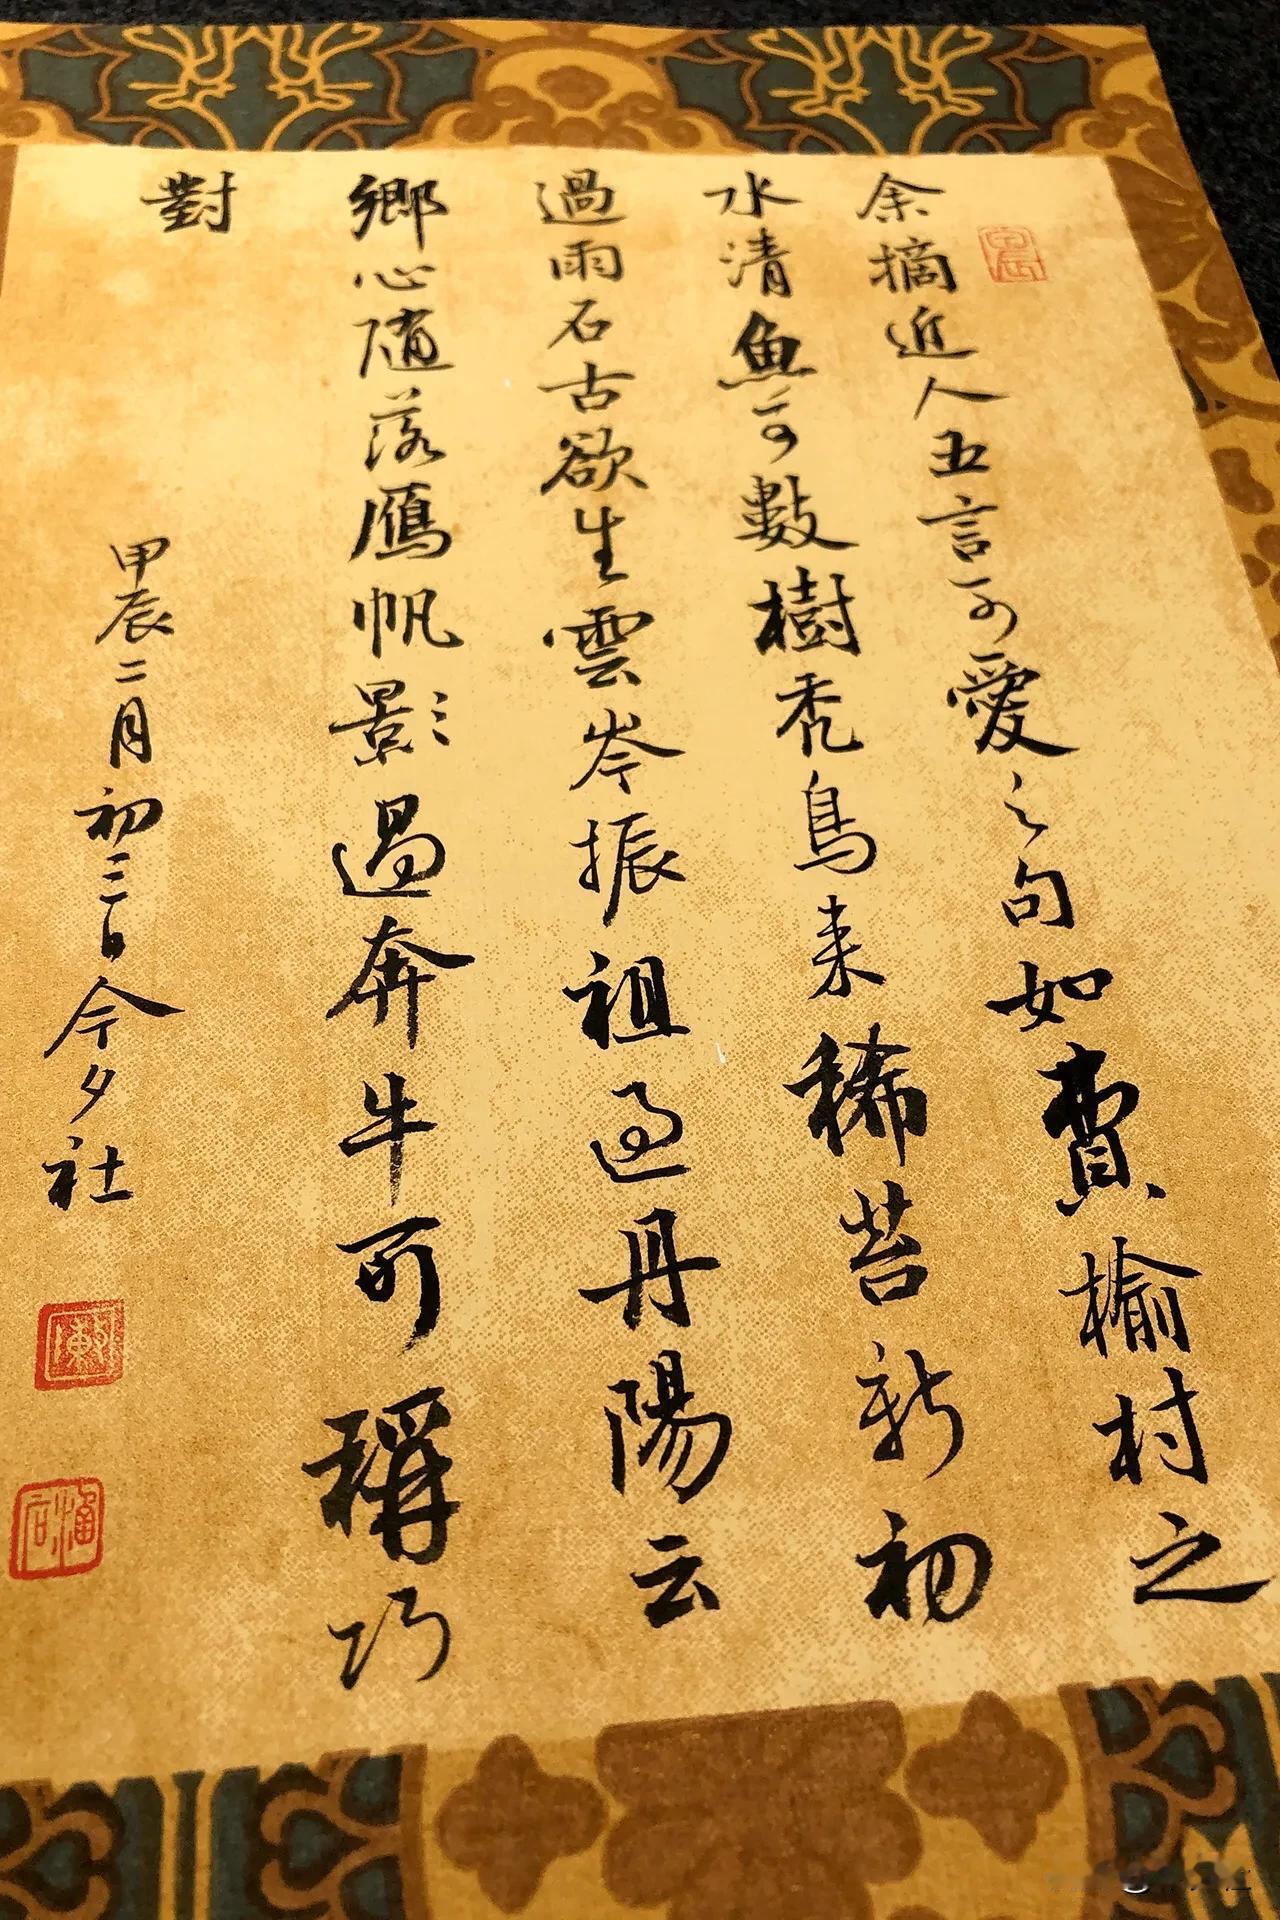 余摘近人五言可愛之句如費榆村之
水清魚可數樹秃鳥来稀苔新初
過雨石古欲生雲岑振祖過丹陽云
鄉心随落鴈帆影過奔牛可稱巧
對
甲辰二月初三日今夕社